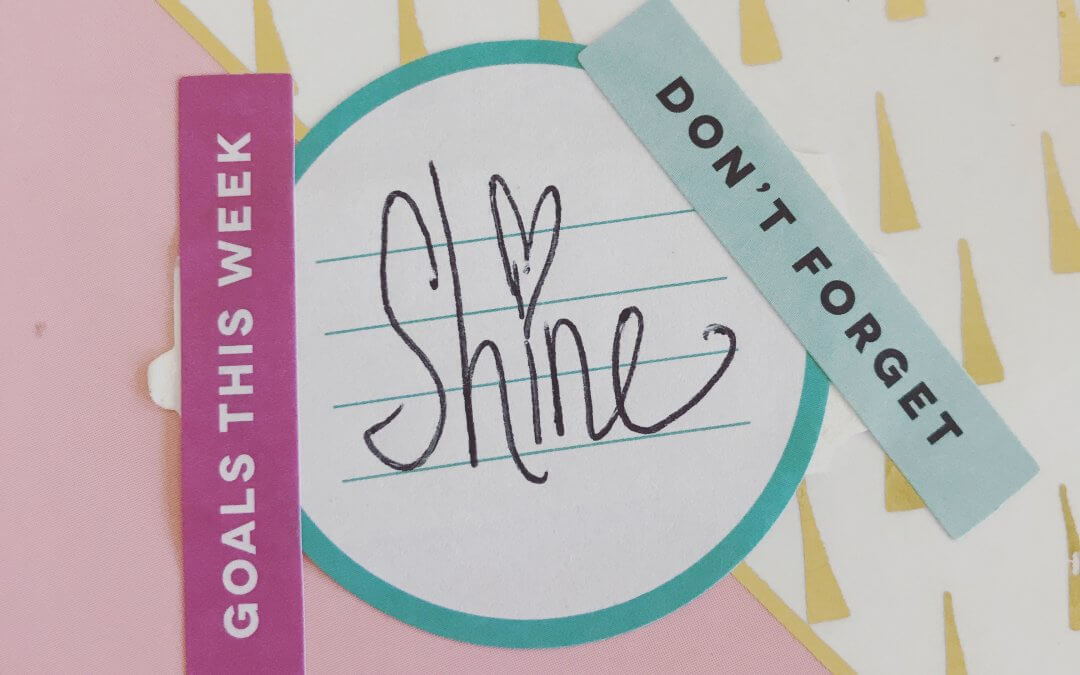 GOALS THIS WEEK
Shine
DON'T FORGET